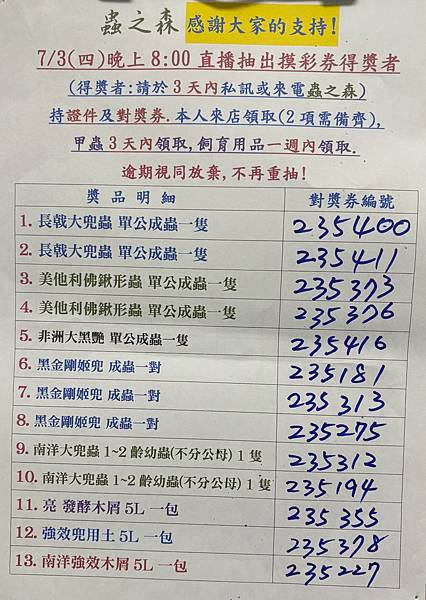 蟲之森 感謝大家的支持!
7/3(四)晚上 8:00 直播抽出摸彩券得獎者
(得獎者:請於 3 天內私訊或來電蟲之森)
持證件及對獎券.本人來店領取(2 項需備齊),
甲蟲 3 天內領取,飼育用品一週內領取.
逾期視同放棄,不再重抽!
獎品明細 對獎券編號
1. 長戟大兜蟲 單公成蟲一隻 235400
2. 長戟大兜蟲 單公成蟲一隻 235411
3. 美他利佛鍬形蟲 單公成蟲一隻 235373
4. 美他利佛鍬形蟲 單公成蟲一隻 235376
5. 非洲大黑艷 單公成蟲一隻 235416
6. 黑金剛姬兜 成蟲一對 235181
7. 黑金剛姬兜 成蟲一對 235313
8. 黑金剛姬兜 成蟲一對 235275
9. 南洋大兜蟲 1~2 齡幼蟲(不分公母) 1 隻 235312
10. 南洋大兜蟲 1~2 齡幼蟲(不分公母) 1 隻 235194
11. 亮 發酵木屑 5L 一包 235355
12. 強效兜用土 5L 一包 235378
13. 南洋強效木屑 5L 一包 235227